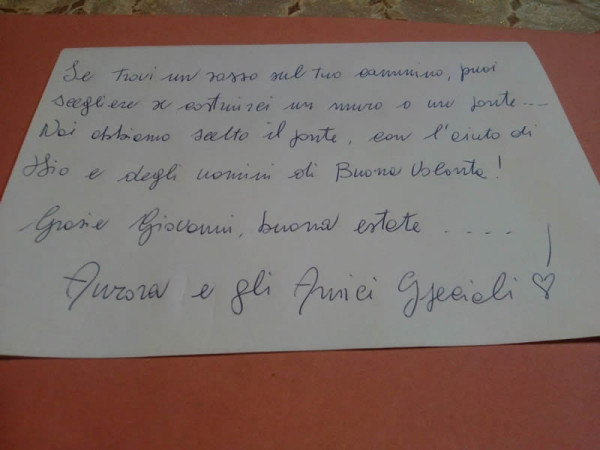 Se trovi un sasso sul tuo cammino, puoi
scegliere se costruirci un muro o un ponte....
Noi abbiamo scelto il ponte, con l'aiuto di
Dio e degli uomini di Buona Volontà!
Grazie Giovanni, buona estate ..... !
Aurora e gli Amici Speciali ♡